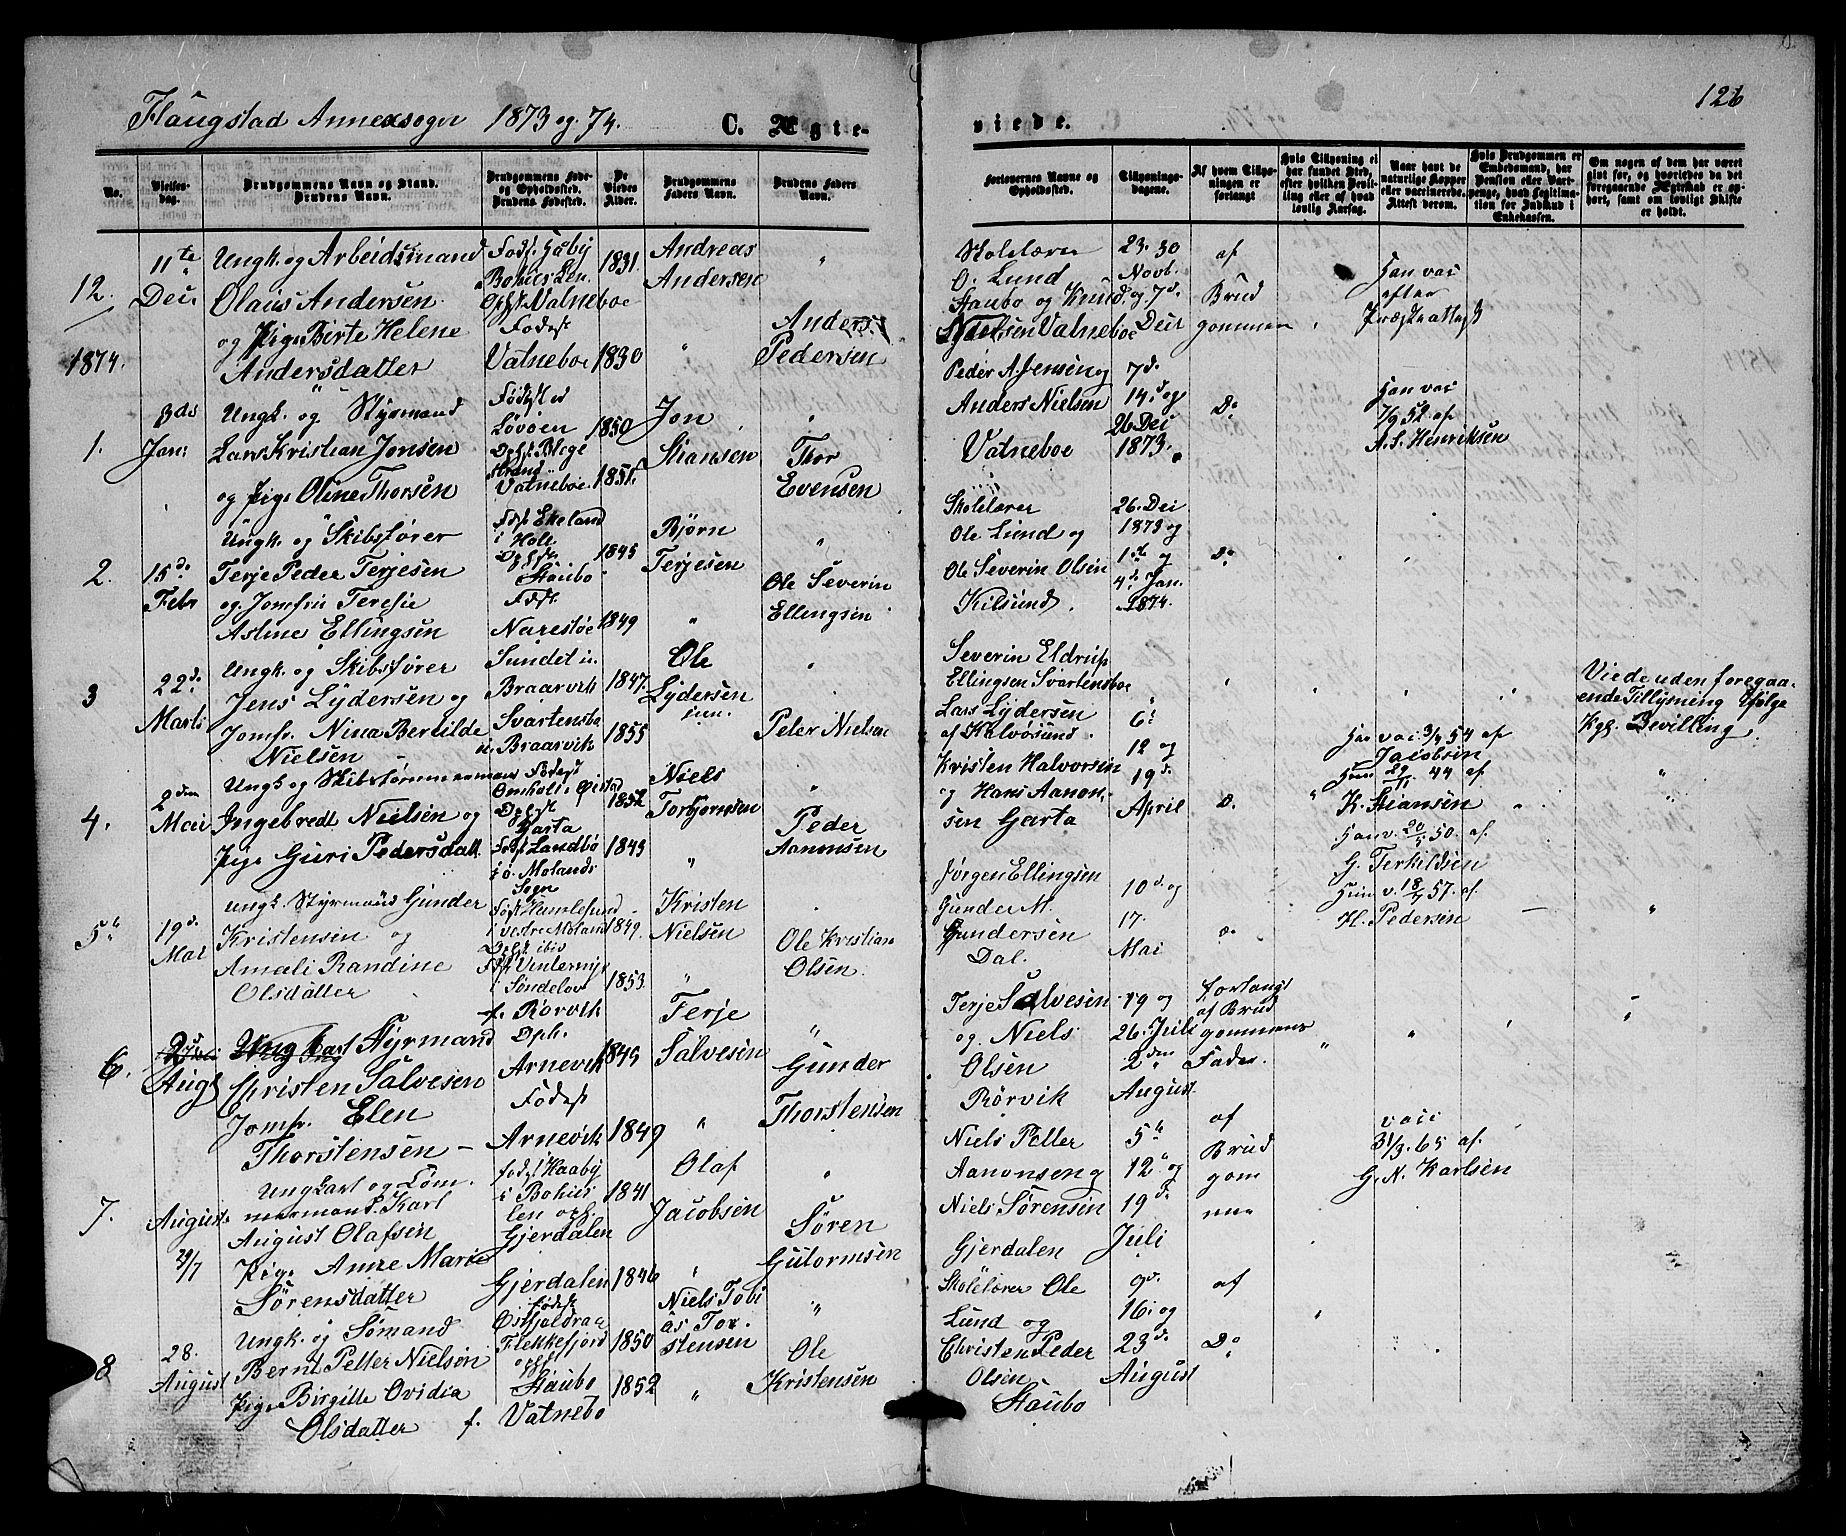 Flaugstad Annexsogn 1873 og 74. C. Ægteviede. 126
No.
Vielses-dag.
Brudgommens Navn og Stand. Brudens Navn.
Brudgommens Føde- og Opholdssted. Brudens Fødested.
De Viedes Alder.
Brudgommens Faders Navn.
Brudens Faders Navn.
Forlovernes Navne og Opholdssted.
Tillysnings-dagene.
Af hvem Tillysningen er forlangt
Hvis Tillysning ei har fundet Sted, efter hvilken Bevilling eller af hvad lovlig Aarsag.
Naar havt de naturlige Kopper eller vaccinerede. Attest derom.
Hvis Brudgommen er Embedsmand, har Pension eller Vartpenge, hvad Legitimation for Indskud i Enkekassen.
Om nogen af dem har været gift før, og hvorledes da det foregaaende Ægteskab er ophørt, samt om lovligt Skifte er holdt.
12. 11te Deci
Ungk. og Arbeidsmand
Olaus Andersen
og Pige Berte Helene
Andersdatter
Bohus Len
Opst. Vatneboe
Fødest
Vatneboe
1831. 1830
Andreas Andersen
Anders Pedersen
Skolelærer
O. Lund
Staubo og Knud
Nielsen Vatneboe
23. 30 Novb. og 7d. Deci
af Brudgommen
Han var efter Præsteattest
1874.
1. 3die Jan:
Ungk. og Styrmand
Lars Kristian Jonsen
og Pige Oline Thorsen
Vatneboe
1850 1851
Jon
Thor Evensen
Peder A. Jensen og
Anders Nielsen
Vatneboe
7d. 14d. og 26 Dei 1873.
Do
Han var 7/9 52 af A. S. Henriksen
2. 15d. Febr
Ungk. og Skibsfører
Terje Peder Terjesen
og Jomfru Teresie
Astine Ellingsen
Fødst Ekeland
i Holt
Opst.
Staubo
Fødst.
Narestøe
1845 1849
Bjørn Terjesen
Ole Severin Ellingsen
Skolelærer
Ole Lund og
Ole Severin Olsen
Kilsund.
26. Dei 1873 og 1ste og 4de Jan. 1874.
Do
3 22d. Marti
Ungk. og Skibsfører
Jens Lydersen og
Jomfr. Nina Bertilde
Nielsen
Sundet i
Braarvik
Svartensbo
i Braarvik
1847. 1855
Ole Lydersen
Peter Nielsen
Severin Eldrup
Ellingsen Svartensboe
Lars Lydersen
af Kalvøsund.
Viede uden foregaaende Tillysning ifølge Kgl. Bevilling
4. 2den Mai
Ungk og Skibstømmermand
Ingebredt Nielsen og
Pige Guri Pedersdatt.
Fødest
Omholt i
Opst
Garta
Fødst Landbø
i ø. Molands
Sogn
1852 1843
Niels Torbjørnsen
Peder Aanonsen
Kristen Halvorsen
og Hans Aanonsen Garta
6d. 12 og 19d. April
Do
Han var 3/7 54 af Jacobsen
Hun 29/11 44 af K. Stiansen
5. 19d. Mai
Ungk. Styrmand Gunder
Kristensen og
Amali Randine
Olsdatter
i vestre Moland
Opst ibid
i Søndelov
1849. 1853.
Kristen Nielsen
Ole Kristian Olsen
Jørgen Ellingsen
Gunder M.
Gundersen
Dal.
10d. og 17. Mai
Do
Han v. 20/5 50. af. G. Terkildsen
Hun v. 18/7 57. af. H. Pedersen
6. Augt
Ungkarl Styrmand
Christen Salvesen
Jomfr. Elen
Thorstensen
f. Rørvik
Oph.
Arnevik
Fødest
Arnevik
1849 1849
Terje Salvesen
Gunder Thorstensen
Terje Salvesen
og Niels
Olsen
Rørvik
19 og 26. Juli 2den August
forlangt af Brudgommens Fader.
7. August 29/7
Ungkarl og Tømmermand Karl
August Olafsen
Pige Anne Marie
Sørensdatter
Fødst Haaby
i Bohuslen oph.
Gjerdalen
Gjerdalen
1841 1846
Olaf Jacobsen
Søren Gutormsen
Niels Petter
Aanonsen og
Niels Sørensen
Gjerdalen
5d. 12d. og 19d. Juli
af Brudgommen
vacc 31/3. 65 af. G. N. Karlsen
8 28. August
Ungk. og Sømand
Bernt Petter Nielsen
Pige Birgitte Ovidia
Olsdatter
Fødest
Flekkefjord
opst
Staubo
f. Vatnebo
1850 1852
Niels Tobias Torstensen
Ole Kristensen
Skolelærer Ole
Lund og
Christen Peder
Olsen
Staubo
9d. 16. og 23d. August
af Do